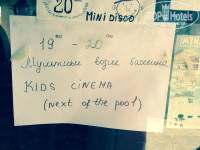 20
MINI DISCO
TOP Hotels
19⁰⁰ - 20⁰⁰
Мультики возле бассейна
KIDS CINEMA
(next of the pool)